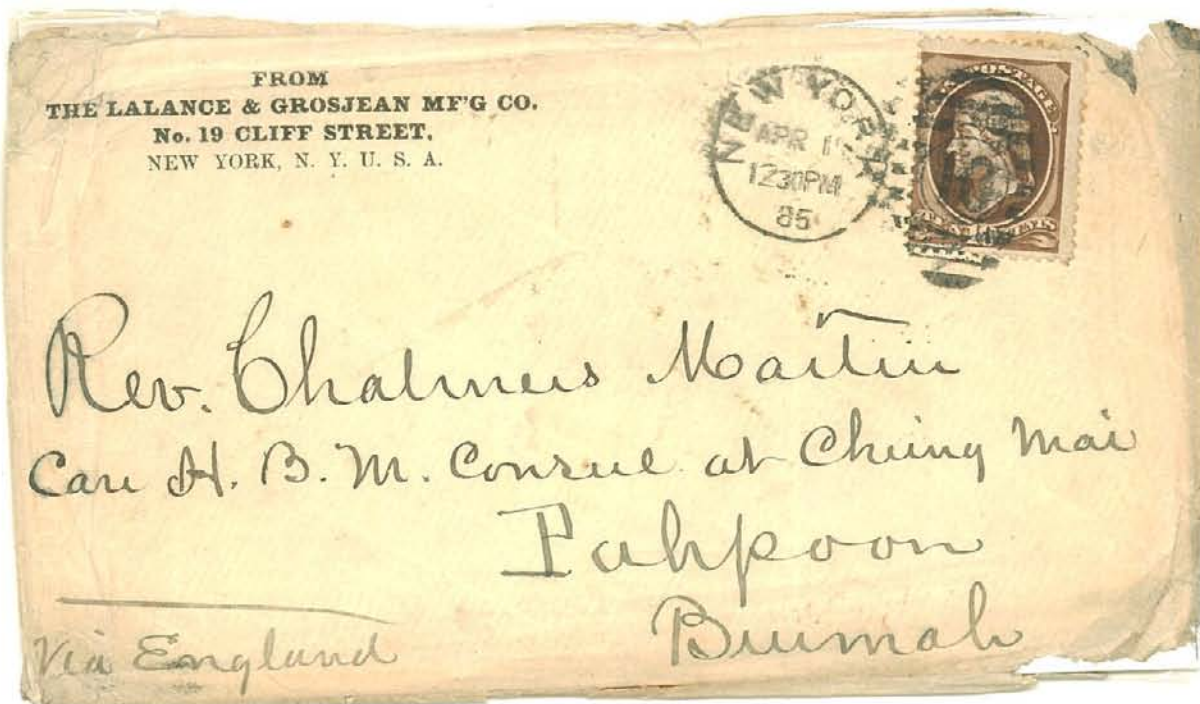 FROM
THE LALANCE & GROSJEAN MF'G CO.
No. 19 CLIFF STREET,
NEW YORK, N. Y. U. S. A.
NEW YORK
APR
1230PM
85
POSTAGE
Rev. Chalmers Martin
Care H. B. M. Consul at Cheung Mai
Pahpoon
Burmah
Via England